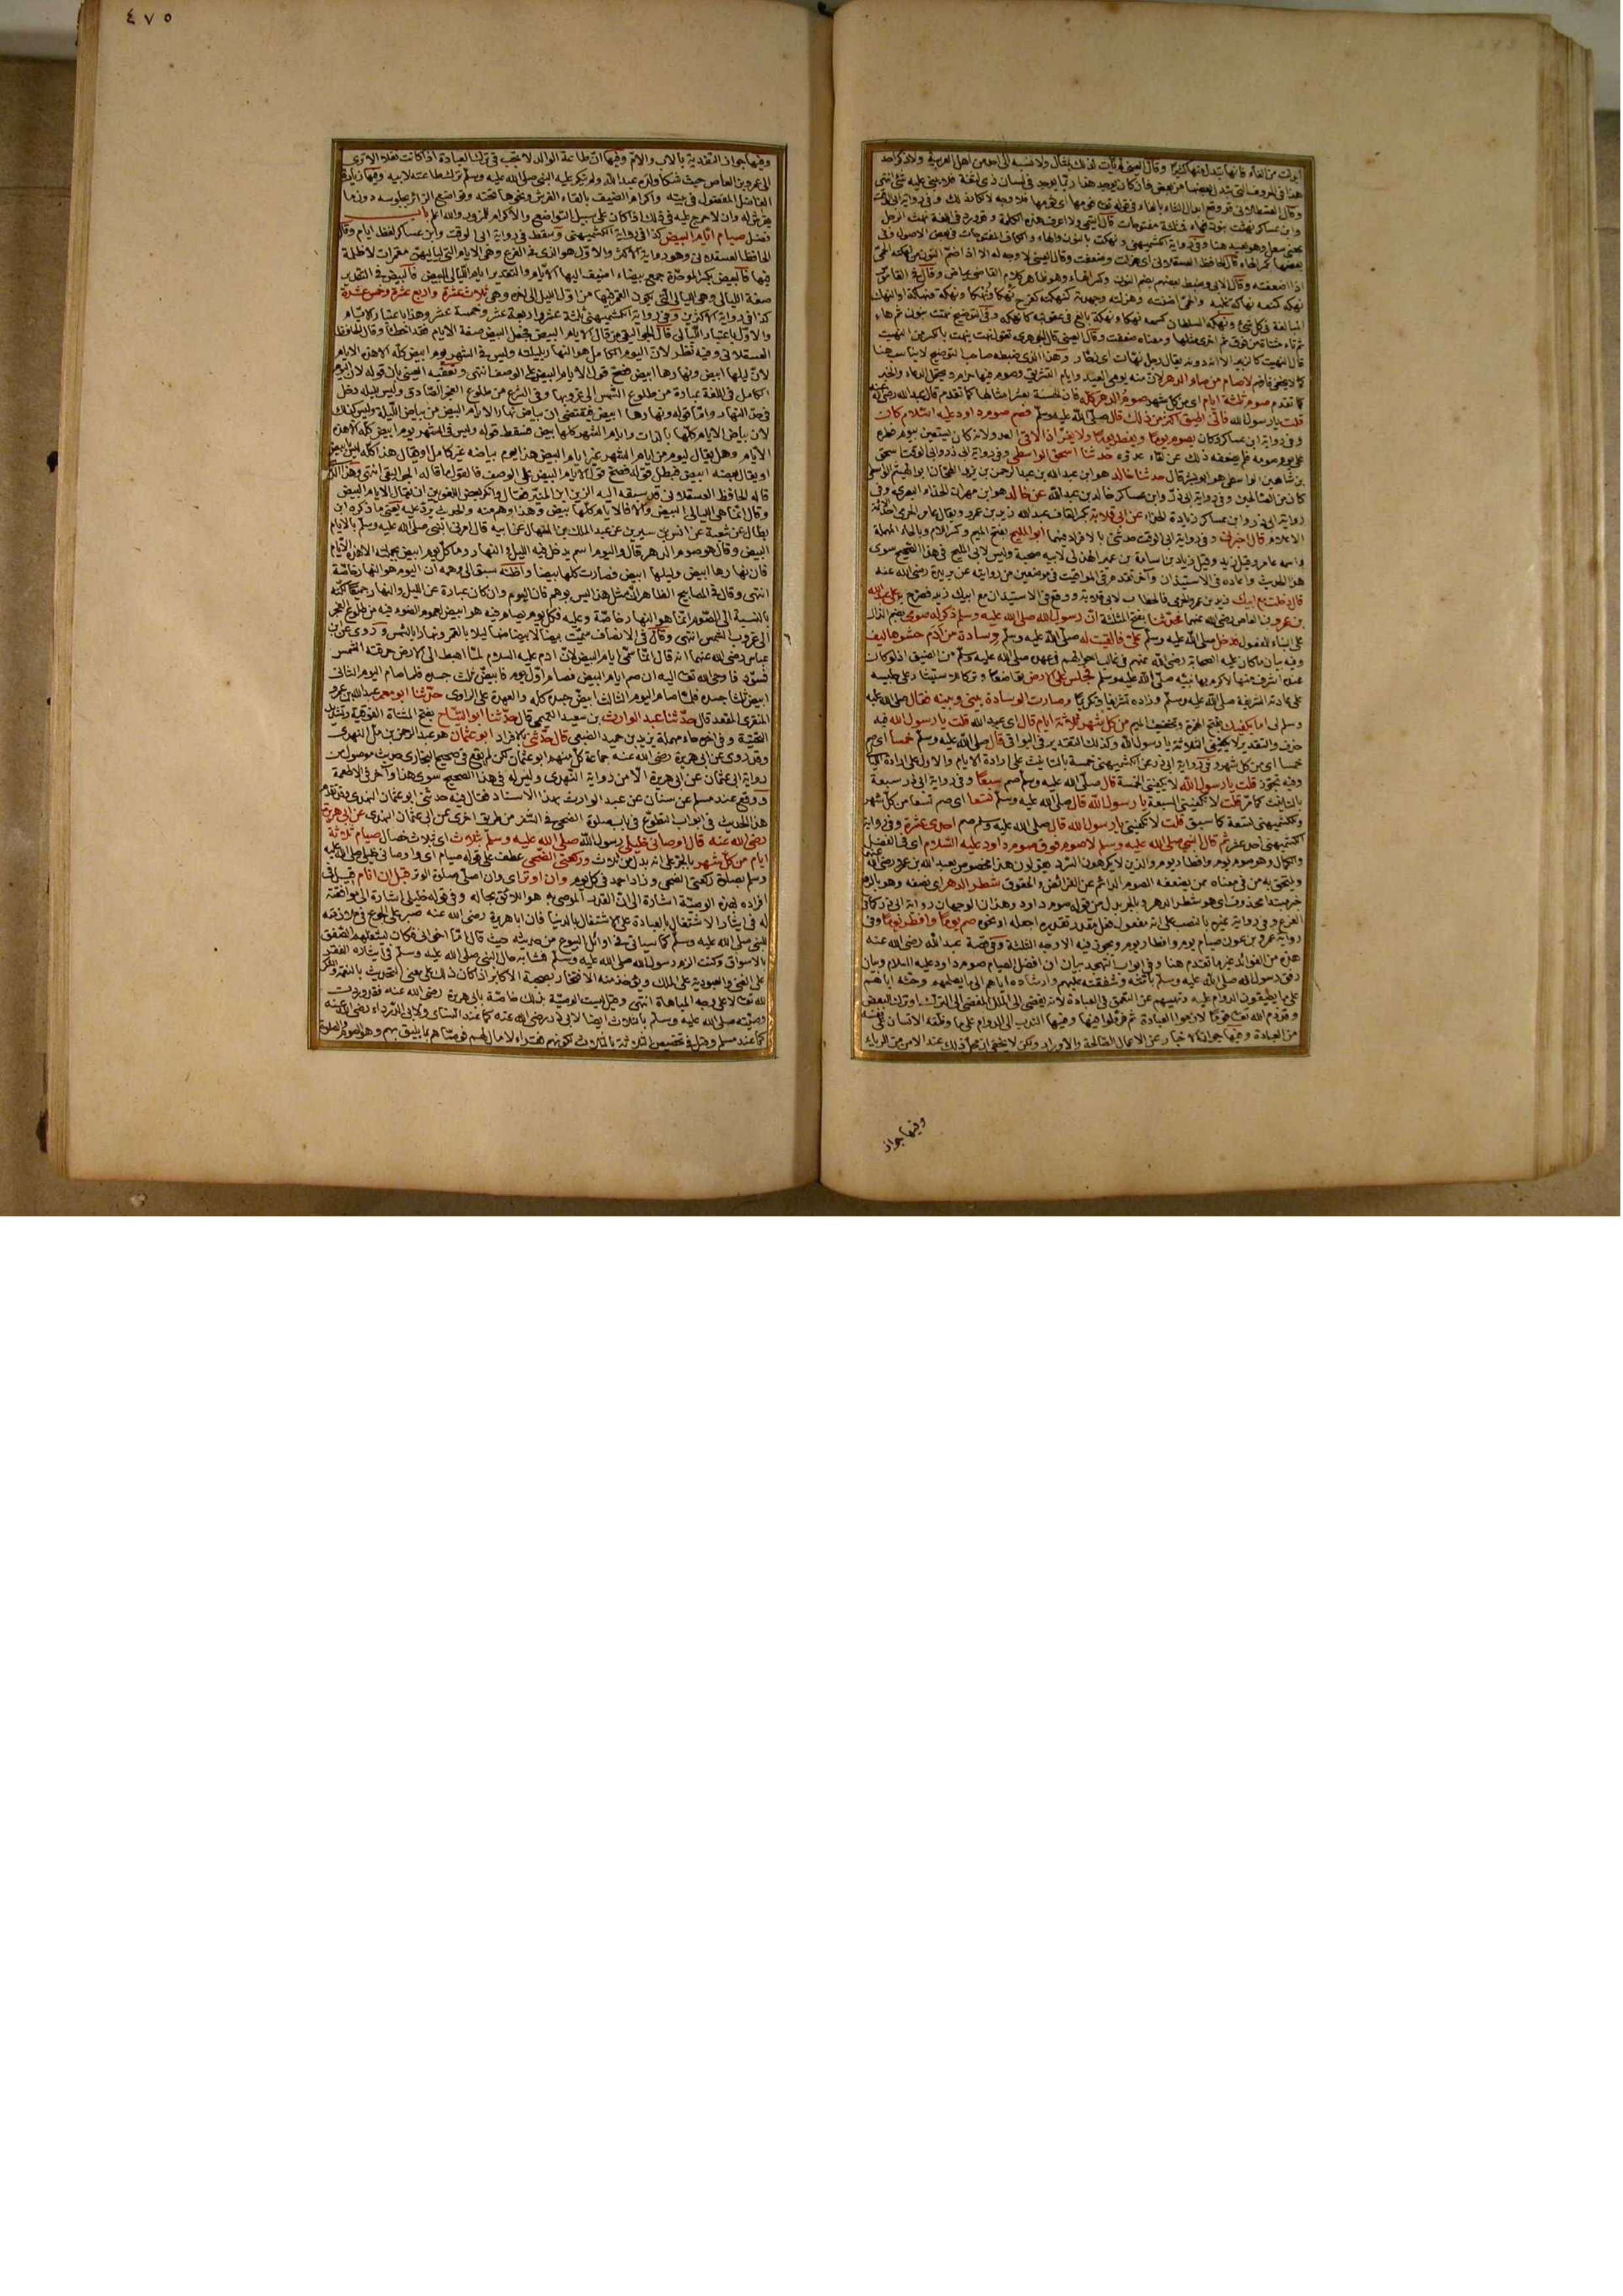 قلت يا رسول الله فانى اطيق اكثر من ذلك قال صلى الله عليه وسلم فصم صوم داود عليه السلام كان
وفى رواية ابن عساكر وكان يصوم يوما ويفطر يوما ولا يفر اذا لاقى العدو لانه كان يستعين بيوم فطره
على يوم صومه فلم يضعفه ذلك عن لقاء عدوه حدثنا اسحق الواسطى وفى رواية ابى ذر
بن شاهين الواسطى هو ابو بشر قال حدثنا خالد هو ابن عبد الله بن عبد الرحمن بن يزيد الطحان ابو الهيثم الواسطى
كان من الصالحين وفى رواية ابى ذر وابن عساكر خالد بن عبد الله عن خالد هو ابن مهران الحذاء البصرى وفى
رواية ابى ذر وابن عساكر زيادة الحذاء عن ابى قلابة بكسر القاف عبد الله بن زيد بن عمرو ويقال عامر الجرمى احد الائمة
الاعلام قال اخبرنى وفى رواية ابى الوقت حدثنى بالافراد فيهما ابو المليح بفتح الميم وكسر اللام وبالحاء المهملة
واسمه عامر وقيل زيد وقيل زياد بن اسامة بن عمير الهذلى لابيه صحبة وليس لابى المليح فى هذا الصحيح سوى
هذا الحديث واعاده فى الاستيذان وآخر تقدم فى المواقيت فى موضعين من روايته عن بريدة رضى الله عنه
قال دخلت مع ابيك زيد بن عمرو الجرمى فالخطاب لابى قلابة ووقع فى الاستيذان مع ابيك زيد فصرح به على عبد الله
بن عمرو بن العاص رضى الله عنهما فحدثنا بفتح المثلثة ان رسول الله صلى الله عليه وسلم ذكر له صومى بضم الذال
على البناء للمفعول فدخل صلى الله عليه وسلم علىّ فالقيت له صلى الله عليه وسلم وسادة من ادم حشوها ليف
وفيه بيان ما كان عليه الصحابة رضى الله عنهم فى غالب احوالهم فى عهده صلى الله عليه وسلم من الضيق اذ لو كان
عنده اشرف منها لاكرم بها نبيه صلى الله عليه وسلم فجلس على الارض تواضعا
على عادته الشريفة صلى الله عليه وسلم وزاده تشريفا وتكريما وصارت الوسادة بينى وبينه فقال صلى الله عليه
وسلم لى اما يكفيك بفتح الهمزة وتخفيف الميم من كل شهر ثلاثة ايام قال اى عبد الله قلت يا رسول الله فيه
حذف والتقدير لا يكفينى الثلاثة يا رسول الله وكذلك التقدير فى البواقى قال صلى الله عليه وسلم خمسا اى صم
خمسا اى من كل شهر وفى رواية ابى ذر عن الكشميهنى خمسة بالتانيث على ارادة الايام والاول على ارادة الليالى
وفيه تجوز قلت يا رسول الله لا يكفينى الخمسة قال صلى الله عليه وسلم صم سبعا وفى رواية ابى ذر سبعة
بالتانيث كما مر قلت لا يكفينى السبعة يا رسول الله قال صلى الله عليه وسلم تسعا اى صم تسعا من كل شهر
وللكشميهنى تسعة كما سبق قلت لا تكفينى يا رسول الله قال صلى الله عليه وسلم صم احدى عشرة وفى رواية
الكشميهنى احد عشر ثم قال النبى صلى الله عليه وسلم لا صوم فوق صوم داود عليه السلام اى فى الفضل
والكمال وهو صوم يوم وافطار يوم والذين لا يكرهون السرد يقولون هذا مخصوص بعبد الله بن عمرو رضى الله عنهما
ويلتحق به من فى معناه ممن يضعفه الصوم الدائم عن الفرائض والحقوق شطر الدهر اى نصفه وهو بالرفع
خبر مبتدا محذوف اى هو شطر الدهر وبالجر بدل من قوله صوم داود وهذان الوجهان رواية ابى ذر كما فى
الفرع وفى رواية غيره بالنصب على انه مفعول فعل مقدر تقديره اجعله او نحوه صم يوما وافطر يوما وفى
رواية عمرو بن عون صيام يوم وافطار يوم ويجوز فيه الاوجه الثلثة وفى قصة عبد الله رضى الله عنه
هذه من الفوائد غير ما تقدم هنا وفى ابواب التهجد بيان ان افضل الصيام صوم داود عليه السلام وبيان
رفق رسول الله صلى الله عليه وسلم بامته وشفقته عليهم وارشاده اياهم الى ما يصلحهم وحثه اياهم
على ما يطيقون الدوام عليه ونهيهم عن التعمق فى العبادة لانه يفضى الى الملل المفضى الى الترك او ترك البعض
وقد ذم الله تعالى قوما لازموا العبادة ثم فرطوا فيها وفيها الندب الى الدوام على ما وظفه الانسان على نفسه
من العبادة وفيها جواز الاخبار عن الاعمال الصالحة والاوراد ولكن لا يخفى ان محل ذلك عند الامن من الرياء
وفيها جواز
٤٧٥
وفيها جواز التفدية بالاب والام وفيها ان طاعة الوالد لا تجب فى ترك العبادة اذا كانت نفلا الا ترى
الى عمرو بن العاص حيث شكا ولده عبد الله ولم ينكر عليه النبى صلى الله عليه وسلم ترك طاعته لابيه وفيها زيارة
الفاضل المفضول فى بيته واكرام الضيف بالقاء الفرش ونحوها تحته وتواضع الزائر بجلوسه دون ما
يفرش له وان لا حرج عليه فى ذلك اذا كان على سبيل التواضع والاكرام للمزور والله اعلم باب
فضل صيام ايام البيض كذا فى رواية الكشميهنى وسقط فى رواية ابى الوقت وابن عساكر لفظ ايام وقال
الحافظ العسقلانى وهو رواية الاكثر والاول هو الذى فى الفرع وهى الايام التى لياليهن مقمرات لا ظلمة
فيها فالبيض بكسر الموحدة جمع بيضاء اضيف اليها الايام والتقدير ايام الليالى البيض فالبيض فى التقدير
صفة الليالى وهى الليالى التى يكون القمر فيها من اول الليل الى اخره وهى ثلاث عشرة واربع عشرة وخمس عشرة
كذا فى رواية الاكثرين وفى رواية الكشميهنى ثلثة عشر واربعة عشر وخمسة عشر وهذا باعتبار الايام
والاول باعتبار الليالى قال الجواليقى من قال الايام البيض فجعل البيض صفة الايام فقد اخطأ وقال الحافظ
العسقلانى وفيه نظر لان اليوم الكامل هو النهار بليلته وليس فى الشهر يوم ابيض كله الا هذه الايام
لان ليلها ابيض ونهارها ابيض فصح قول الايام البيض على الوصف انتهى وتعقبه العينى بان قوله لان اليوم
الكامل فى اللغة عبارة من طلوع الشمس الى غروبها وفى الشرع من طلوع الفجر الصادق وليس لليله دخل
فى حد النهار واما قوله ونهارها ابيض فيقتضى ان بياض نهار الايام البيض من بياض الليلة وليس كذلك
لان بياض الايام كلها بالذات وايام الشهر كلها بيض فسقط قوله وليس فى الشهر يوم ابيض كله الا هذه
الايام وهل يقال ليوم من ايام الشهر غير ايام البيض هذا يوم بياضه غير كامل او يقال هذا كله ليس بابيض
او يقال بعضه ابيض فبطل قوله فصح قول الايام البيض على الوصف فالقول ما قاله الجواليقى انتهى وهذا الذى
قاله الحافظ العسقلانى قد سبقه اليه الزين ابن المنير فقال وانكر بعض اللغويين ان يقال الايام البيض
وقال انما هى الليالى البيض والا فالايام كلها بيض وهذا وهم منه والحديث يرد عليه يعنى ما ذكره ابن
بطال عن شعبة عن انس بن سيرين عن عبد الملك بن المنهال عن ابيه قال امرنى النبى صلى الله عليه وسلم بالايام
البيض وقال هو صوم الدهر قال واليوم اسم يدخل فيه الليل والنهار وما كل يوم ابيض بجملته الا هذه الايام
فان نهارها ابيض وليلها ابيض فصارت كلها بيضا واظنه سبق الى وهمه ان اليوم هو النهار خاصة
انتهى وقال فى المصابيح الظاهر ان مثل هذا ليس بوهم فان اليوم وان كان عبارة عن الليل والنهار جميعا لكنه
بالنسبة الى الصوم انما هو النهار خاصة وعليه فكل يوم يصام فيه هو ابيض لعموم الضوء فيه من طلوع الفجر
الى غروب الشمس انتهى وقال فى الانصاف سميت بيضا لابيضاضها ليلا بالقمر ونهارا بالشمس وروى عن ابن
عباس رضى الله عنهما انه قال انما سمى ايام البيض لان ادم عليه السلام لما اهبط الى الارض حرقته الشمس
فاسود فاوحى الله تعالى اليه ان صم ايام البيض فصام اول يوم فابيض ثلث جسده فلما صام اليوم الثانى
ابيض ثلثا جسده فلما صام اليوم الثالث ابيض جسده كله والعهدة على الراوى حدثنا ابو معمر عبد الله بن عمرو
المنقرى المقعد قال حدثنا عبد الوارث بن سعيد التميمى قال حدثنا ابو التياح بفتح المثناة الفوقية وتشديد
التحتية وفى اخره حاء مهملة يزيد بن حميد الضبعى قال حدثنى بالافراد ابو عثمان هو عبد الرحمن بن مل النهدى
وقد روى عن ابى هريرة رضى الله عنه جماعة كل منهم ابو عثمان لكن لم يقع فى صحيح البخارى حديث موصول من
رواية ابى عثمان عن ابى هريرة الا من رواية النهدى وليس له فى هذا الصحيح سوى هذا وآخر فى الاطعمة
ووقع عند مسلم عن سنان عن عبد الوارث بهذا الاسناد فقال فيه حدثنى ابو عثمان النهدى وقد تقدم
هذا الحديث فى ابواب التطوع فى باب صلوة الضحى فى السفر من طريق اخرى عن ابى عثمان النهدى عن ابى هريرة
رضى الله عنه قال اوصانى خليلى رسول الله صلى الله عليه وسلم بثلاث اى بثلاث خصال صيام ثلاثة
ايام من كل شهر بالجر على انه بدل من ثلاث وركعتى الضحى عطف على قوله صيام اى واوصانى خليلى صلى الله عليه
وسلم بصلوة ركعتى الضحى وزاد احمد فى كل يوم وان اوتر اى وان اصلى صلوة الوتر قبل ان انام قيل فى
افراده بهذه الوصية اشارة الى ان القدر الموصى به هو اللائق بحاله وفى قوله خليلى اشارة الى موافقته
له فى ايثار الاشتغال بالعبادة على الاشتغال بالدنيا فان ابا هريرة رضى الله عنه صبر على الجوع فى ملازمته
للنبى صلى الله عليه وسلم كما سياتى فى اوائل البيوع من حديثه حيث قال اما اخوانى فكان يشغلهم الصفق
بالاسواق وكنت الزم رسول الله صلى الله عليه وسلم فشابه حال النبى صلى الله عليه وسلم فى ايثاره الفقر
على الغنى والعبودية على الملك ويؤخذ منه الافتخار بصحبة الاكابر اذا كان ذلك على معنى التحديث بالنعمة والشكر
لله تعالى لا على وجه المباهاة انتهى وقيل ليست الوصية بذلك خاصة بابى هريرة رضى الله عنه فقد وردت
وصيته صلى الله عليه وسلم بالثلاث ايضا لابى ذر رضى الله عنه كما عند النسائى ولابى الدرداء رضى الله عنه
كما عند مسلم وقيل فى تخصيص الثلاثة بالثلاث لكونهم فقراء لا مال لهم فوصاهم بما يليق بهم وهو الصوم والصلوة